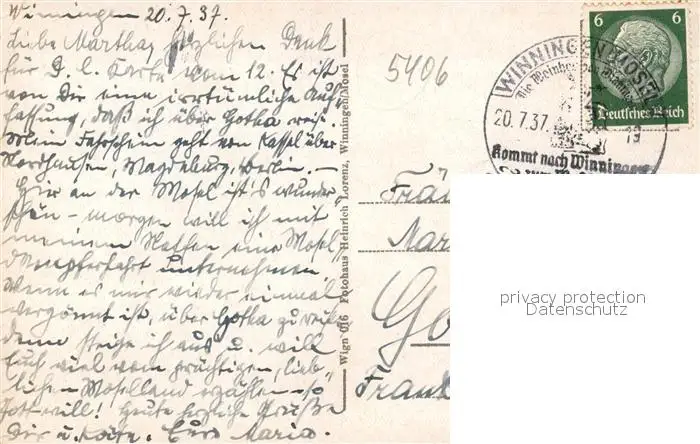 Winningen 20.7.37.
Liebe Martha, herzlichen Dank
für D. l. Karte vom 12. Es ist
von Dir eine irrtümliche Auf-
fassung, daß ich über Gotha reise.
Mein Fahrschein geht von Kassel über
Nordhausen, Magdeburg, Berlin. —
Hier an der Mosel ist's wunder-
schön – morgen will ich mit
meinem Neffen eine Mosel-
dampferfahrt unternehmen
Wenn es mir wieder einmal
vergönnt ist, über Gotha zu reisen
dann steige ich aus u. will
Euch viel vom prächtigen, lieb-
lichen Moselland erzählen – so
Gott will! Heute herzliche Grüße
Dir u. Käte. Eure Maria.
Wign 016 Fotohaus Heinrich Lorenz, Winningen/Mosel
5406
WINNINGEN (MOSEL)
20.7.37.
19
Kommt nach Winningen
6 6
Deutsches Reich
Frä
Mar
Go
Frank
privacy protection
Datenschutz